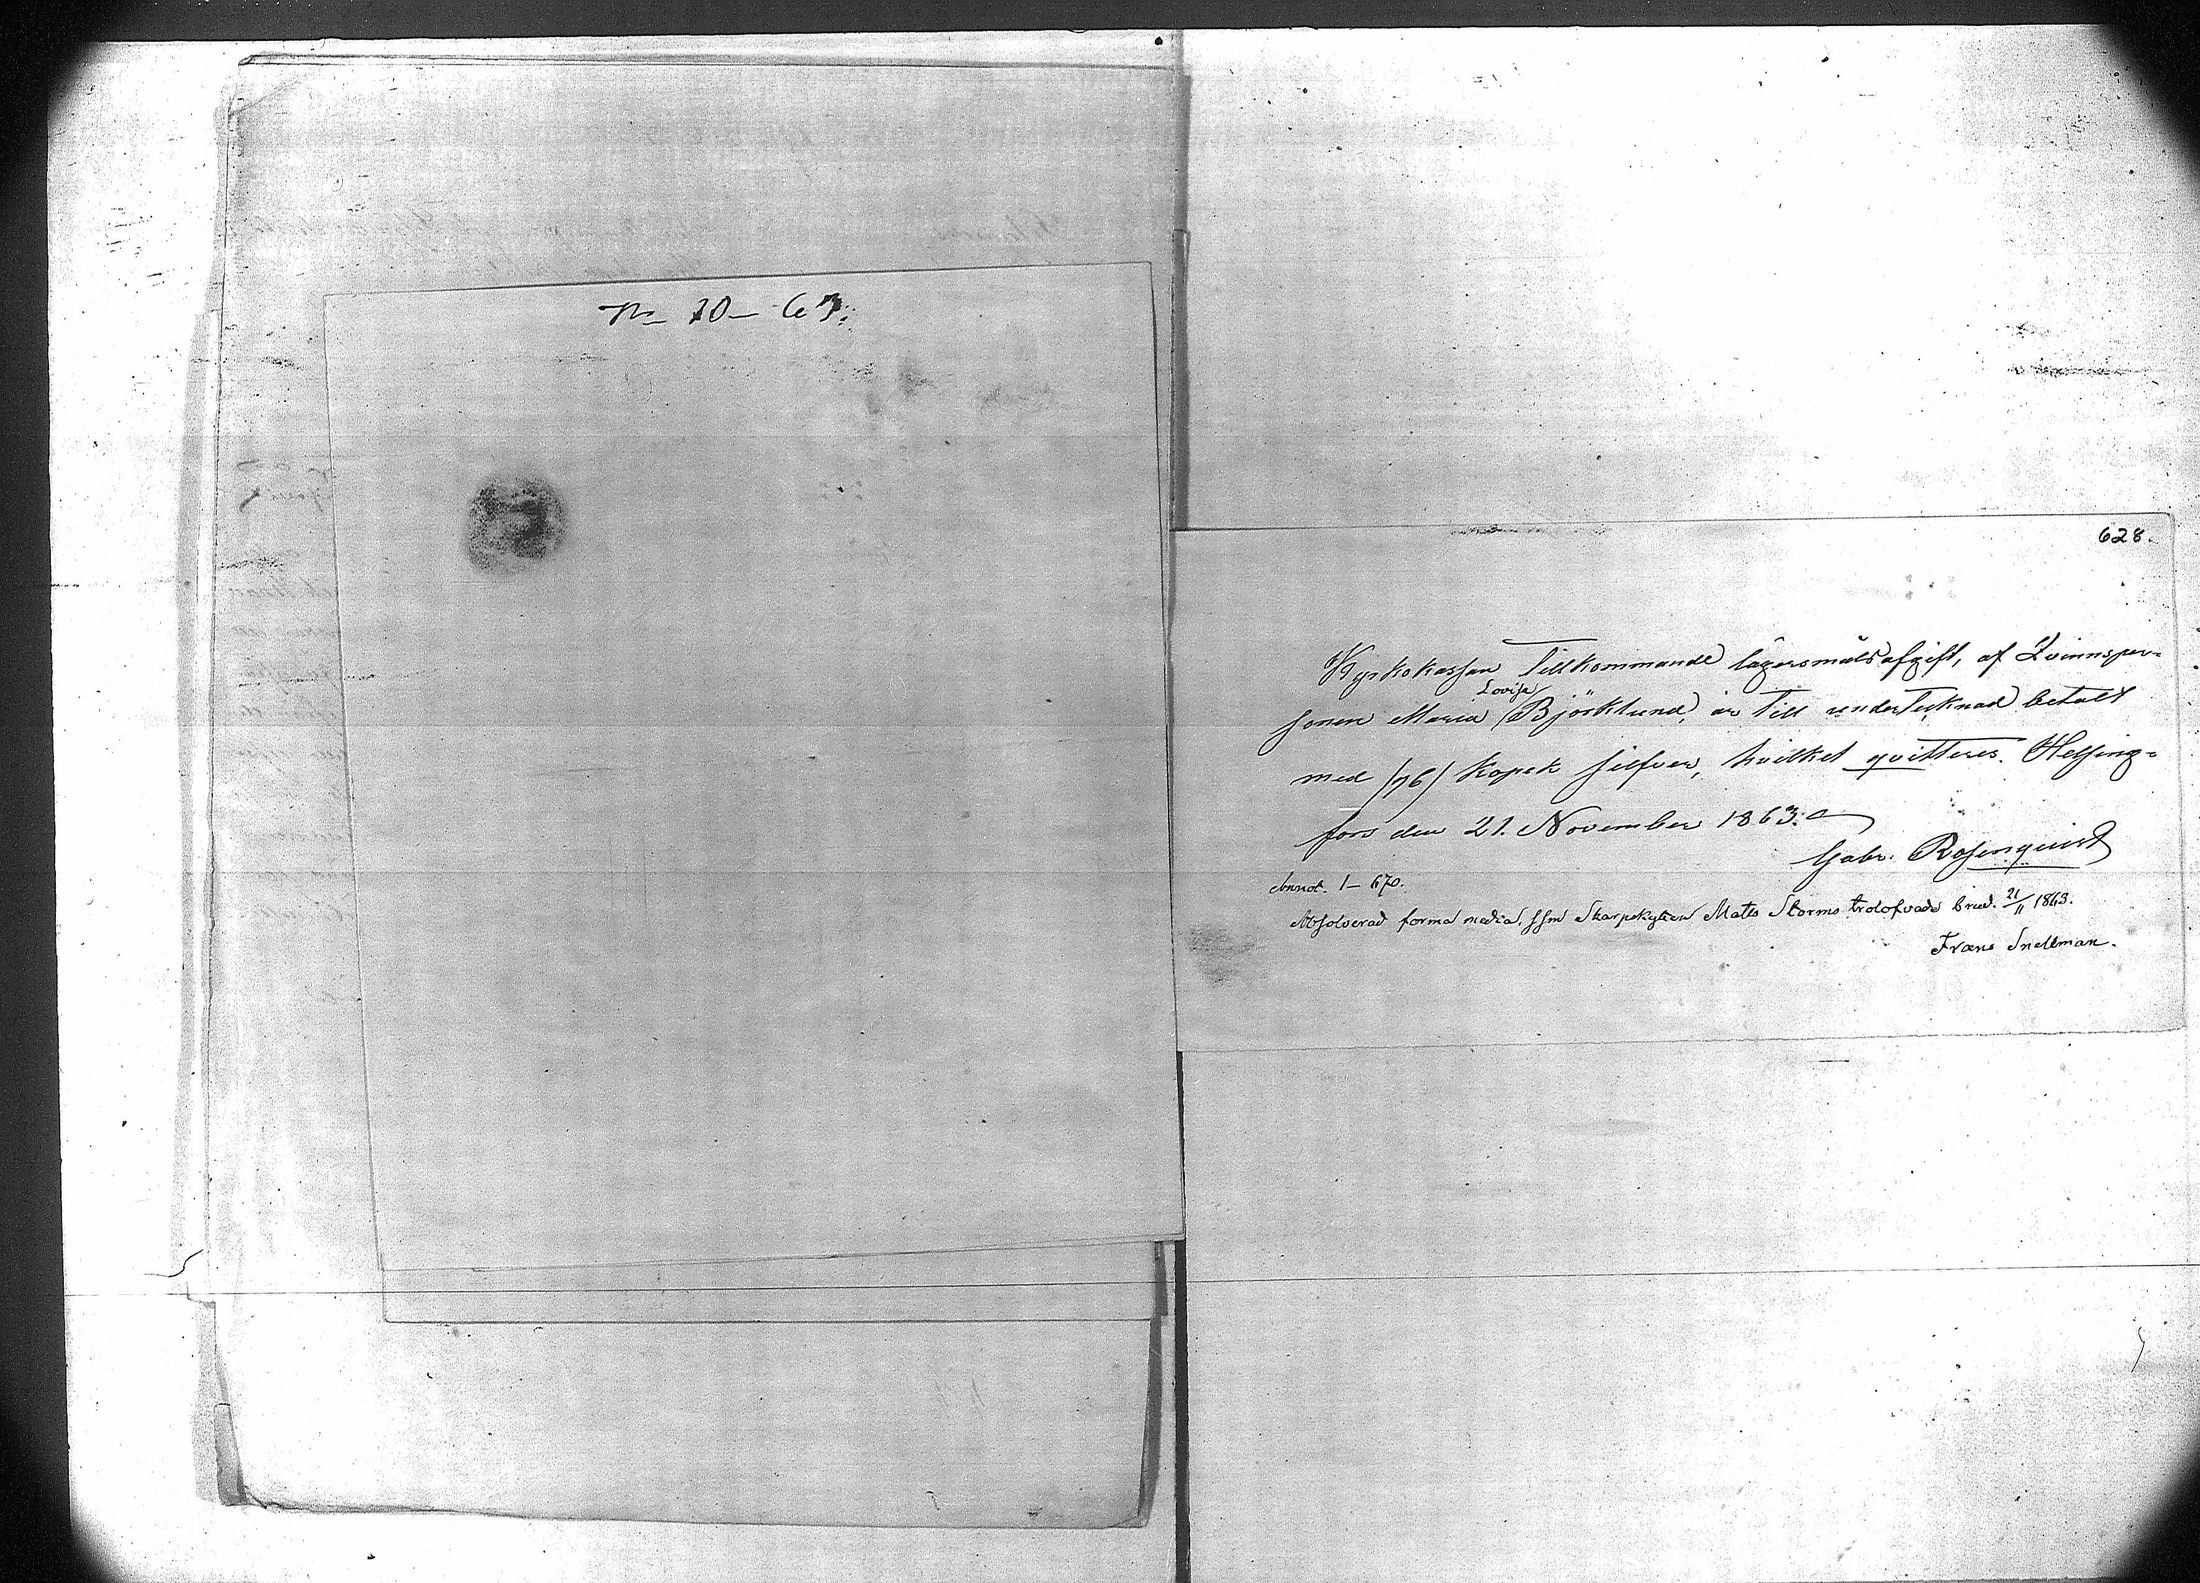 No 10 – 63.
628.
Kyrkokassan Tillkommande lägersmåls afgift, af Qvinnsper-
sonen Maria Lovisa Björklund, är Till undertecknad betalt
med /96/ Kopek silfver, hvilket qvitteres. Helsing-
fors den 21. November 1863.
Gabr. Rosenquist
Annot. 1– 670.
Absolverad forma media, ssm Skarpskytten Matts Storms trolofvade brud. 21/11 1863.
Frans Snellman.